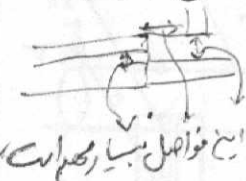 این فواصل بسیار مهم است